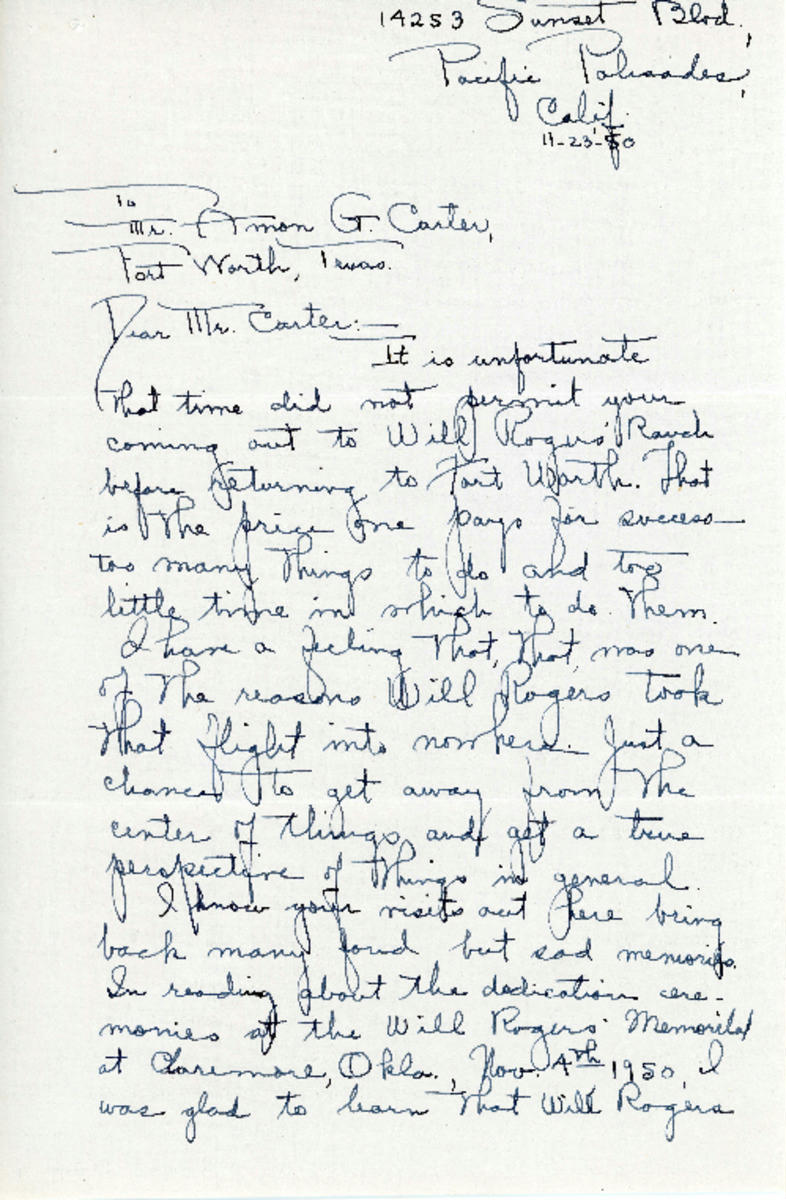 14253 Sunset Blvd.,
Pacific Palisades,
Calif.
11-23-50
To
Mr. Amon G. Carter,
Fort Worth, Texas.
Dear Mr. Carter:—
It is unfortunate
that time did not permit your
coming out to Will Rogers' Ranch
before returning to Fort Worth. That
is the price one pays for success—
too many things to do and too
little time in which to do them.
I have a feeling that, that, was one
of the reasons Will Rogers took
that flight into nowhere. Just a
chance to get away from the
center of things and get a true
perspective of things in general.
I know your visits out here bring
back many fond but sad memories.
In reading about the dedication cere-
monies at the Will Rogers' Memorial
at Claremore, Okla., Nov. 4th 1950, I
was glad to learn that Will Rogers